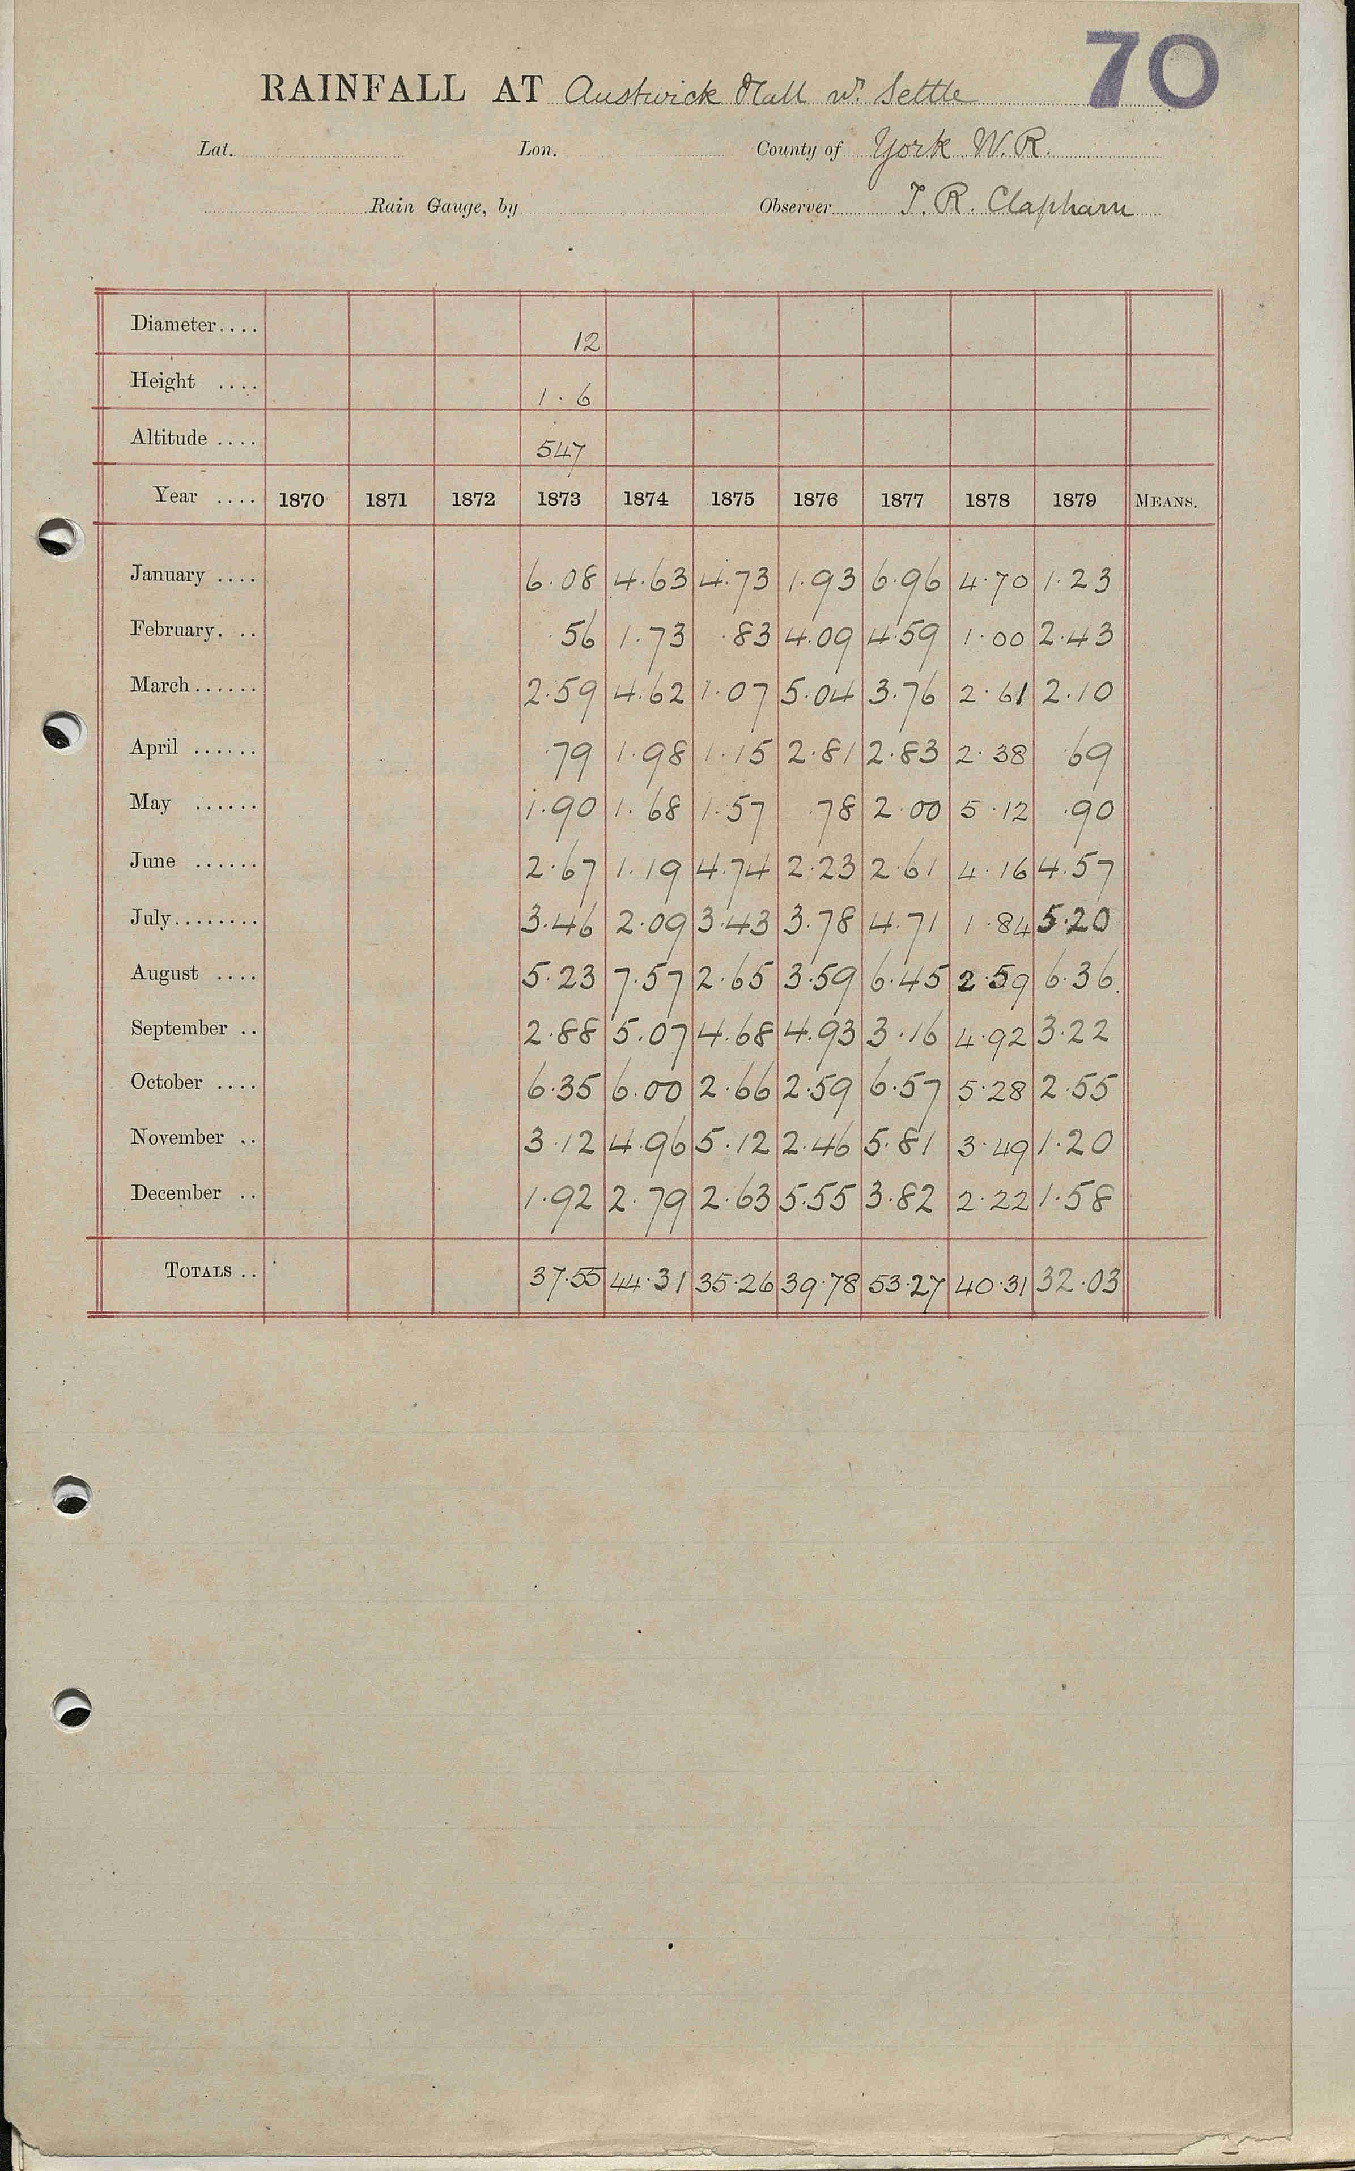 70
RAINFALL AT Austwick Hall nr. Settle
Lat. Lon. County of York W.R.
Rain Gauge, by Observer T. R. Clapham
Diameter.... 12
Height .... 1.6
Altitude .... 547
Year .... 1870 1871 1872 1873 1874 1875 1876 1877 1878 1879 MEANS.
January .... 6.08 4.63 4.73 1.93 6.96 4.70 1.23
February. .. .56 1.73 .83 4.09 4.59 1.00 2.43
March...... 2.59 4.62 1.07 5.04 3.76 2.61 2.10
April ...... .79 1.98 1.15 2.81 2.83 2.38 .69
May ...... 1.90 1.68 1.57 .78 2.00 5.12 .90
June ...... 2.67 1.19 4.74 2.23 2.61 4.16 4.57
July........ 3.46 2.09 3.43 3.78 4.71 1.84 5.20
August .... 5.23 7.57 2.65 3.59 6.45 2.59 6.36
September .. 2.88 5.07 4.68 4.93 3.16 4.92 3.22
October .... 6.35 6.00 2.66 2.59 6.57 5.28 2.55
November .. 3.12 4.96 5.12 2.46 5.81 3.49 1.20
December .. 1.92 2.79 2.63 5.55 3.82 2.22 1.58
TOTALS .. 37.55 44.31 35.26 39.78 53.27 40.31 32.03